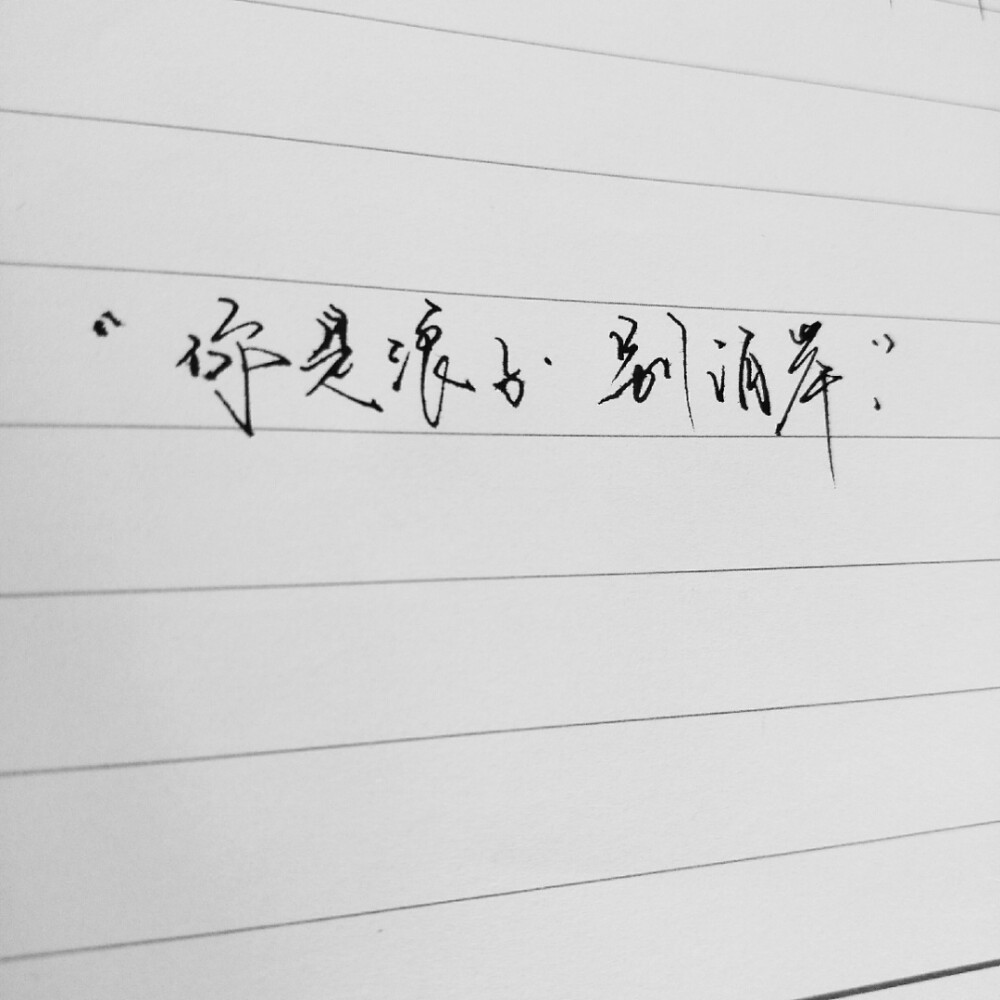 “你是浪子.别泊岸.”